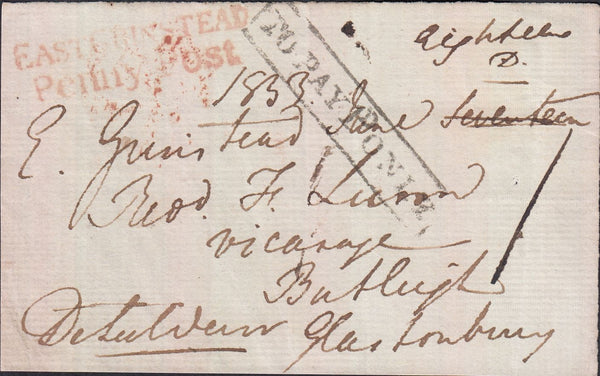 EAST GRINSTEAD
Penny Post
TO PAY 1D ONLY
eighteen
D.
1833 June seventeen
E. Grinstead
Revd. F. Lunn
vicarage
Butleigh
Glastonbury
1